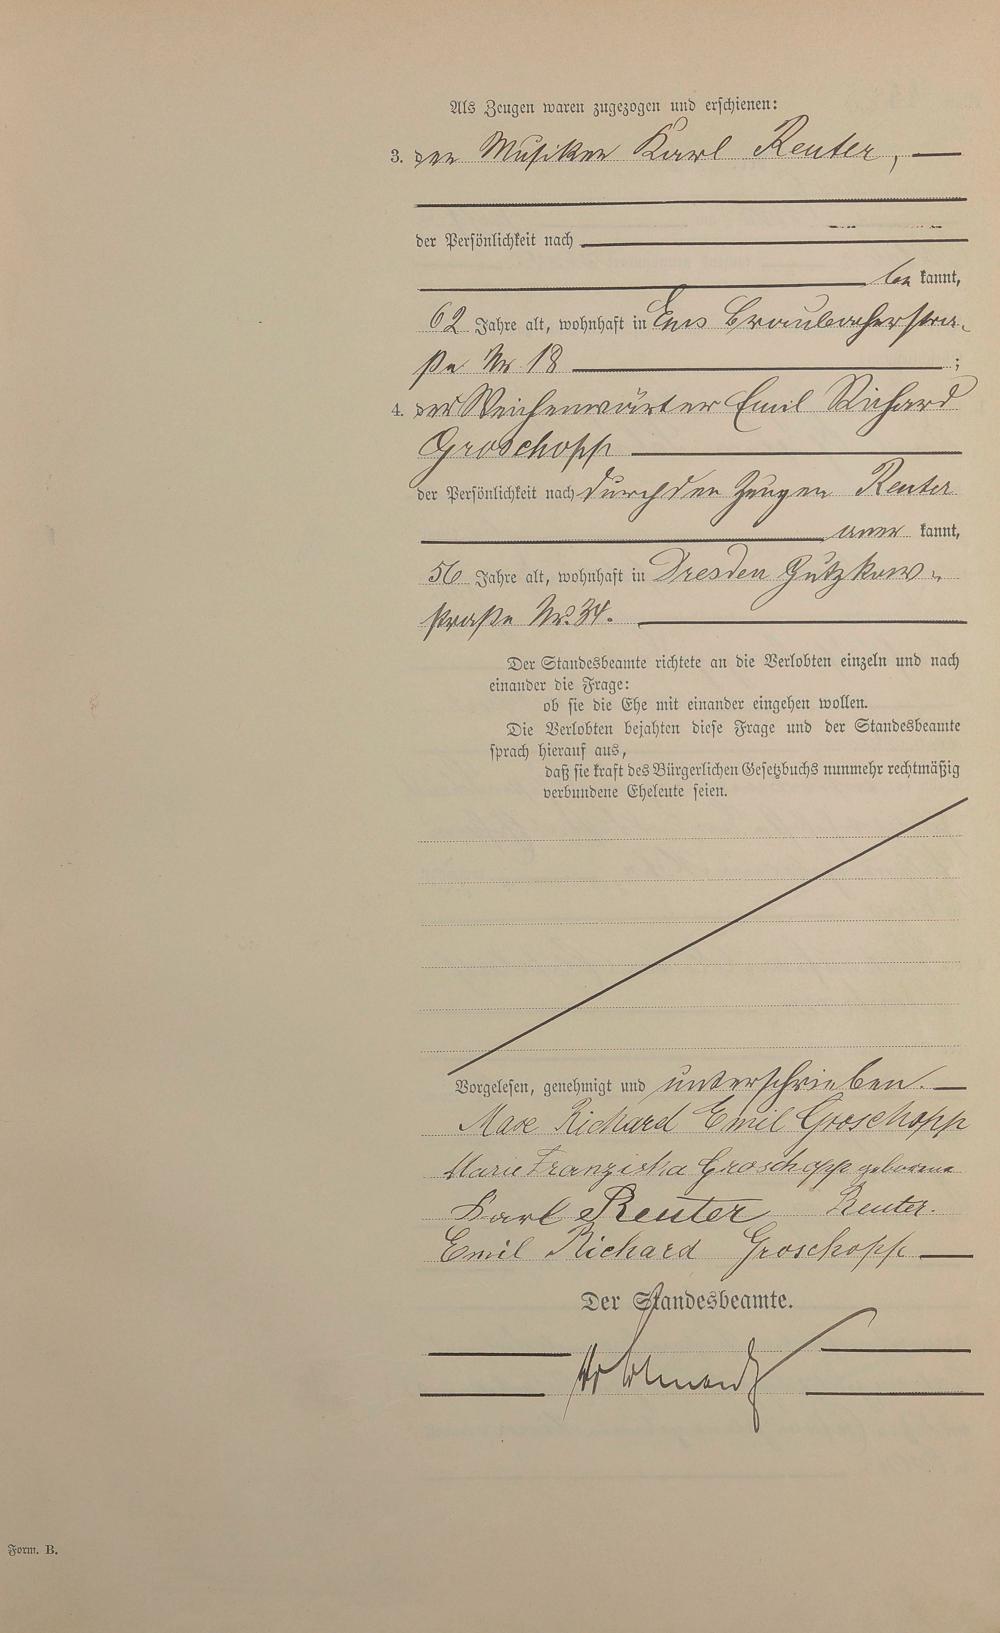 Als Zeugen waren zugezogen und erschienen:
3. der Musiker Karl Reuter,
der Persönlichkeit nach
be kannt,
62 Jahre alt, wohnhaft in Ems Braubacherstra-
ße Nr 18 ;
4. der Weichenwärter Emil Richard
Groschopp
der Persönlichkeit nach durch den Zeugen Reuter
aner kannt,
56 Jahre alt, wohnhaft in Dresden Gutzkow-
straße Nr. 34.
Der Standesbeamte richtete an die Verlobten einzeln und nach
einander die Frage:
ob sie die Ehe mit einander eingehen wollen.
Die Verlobten bejahten diese Frage und der Standesbeamte
sprach hierauf aus,
daß sie kraft des Bürgerlichen Gesetzbuchs nunmehr rechtmäßig
verbundene Eheleute seien.
Vorgelesen, genehmigt und unterschrieben.
Max Richard Emil Groschopp
Marie Franziska Groschopp geborene
Karl Reuter Reuter.
Emil Richard Groschopp
Der Standesbeamte.
Form. B.